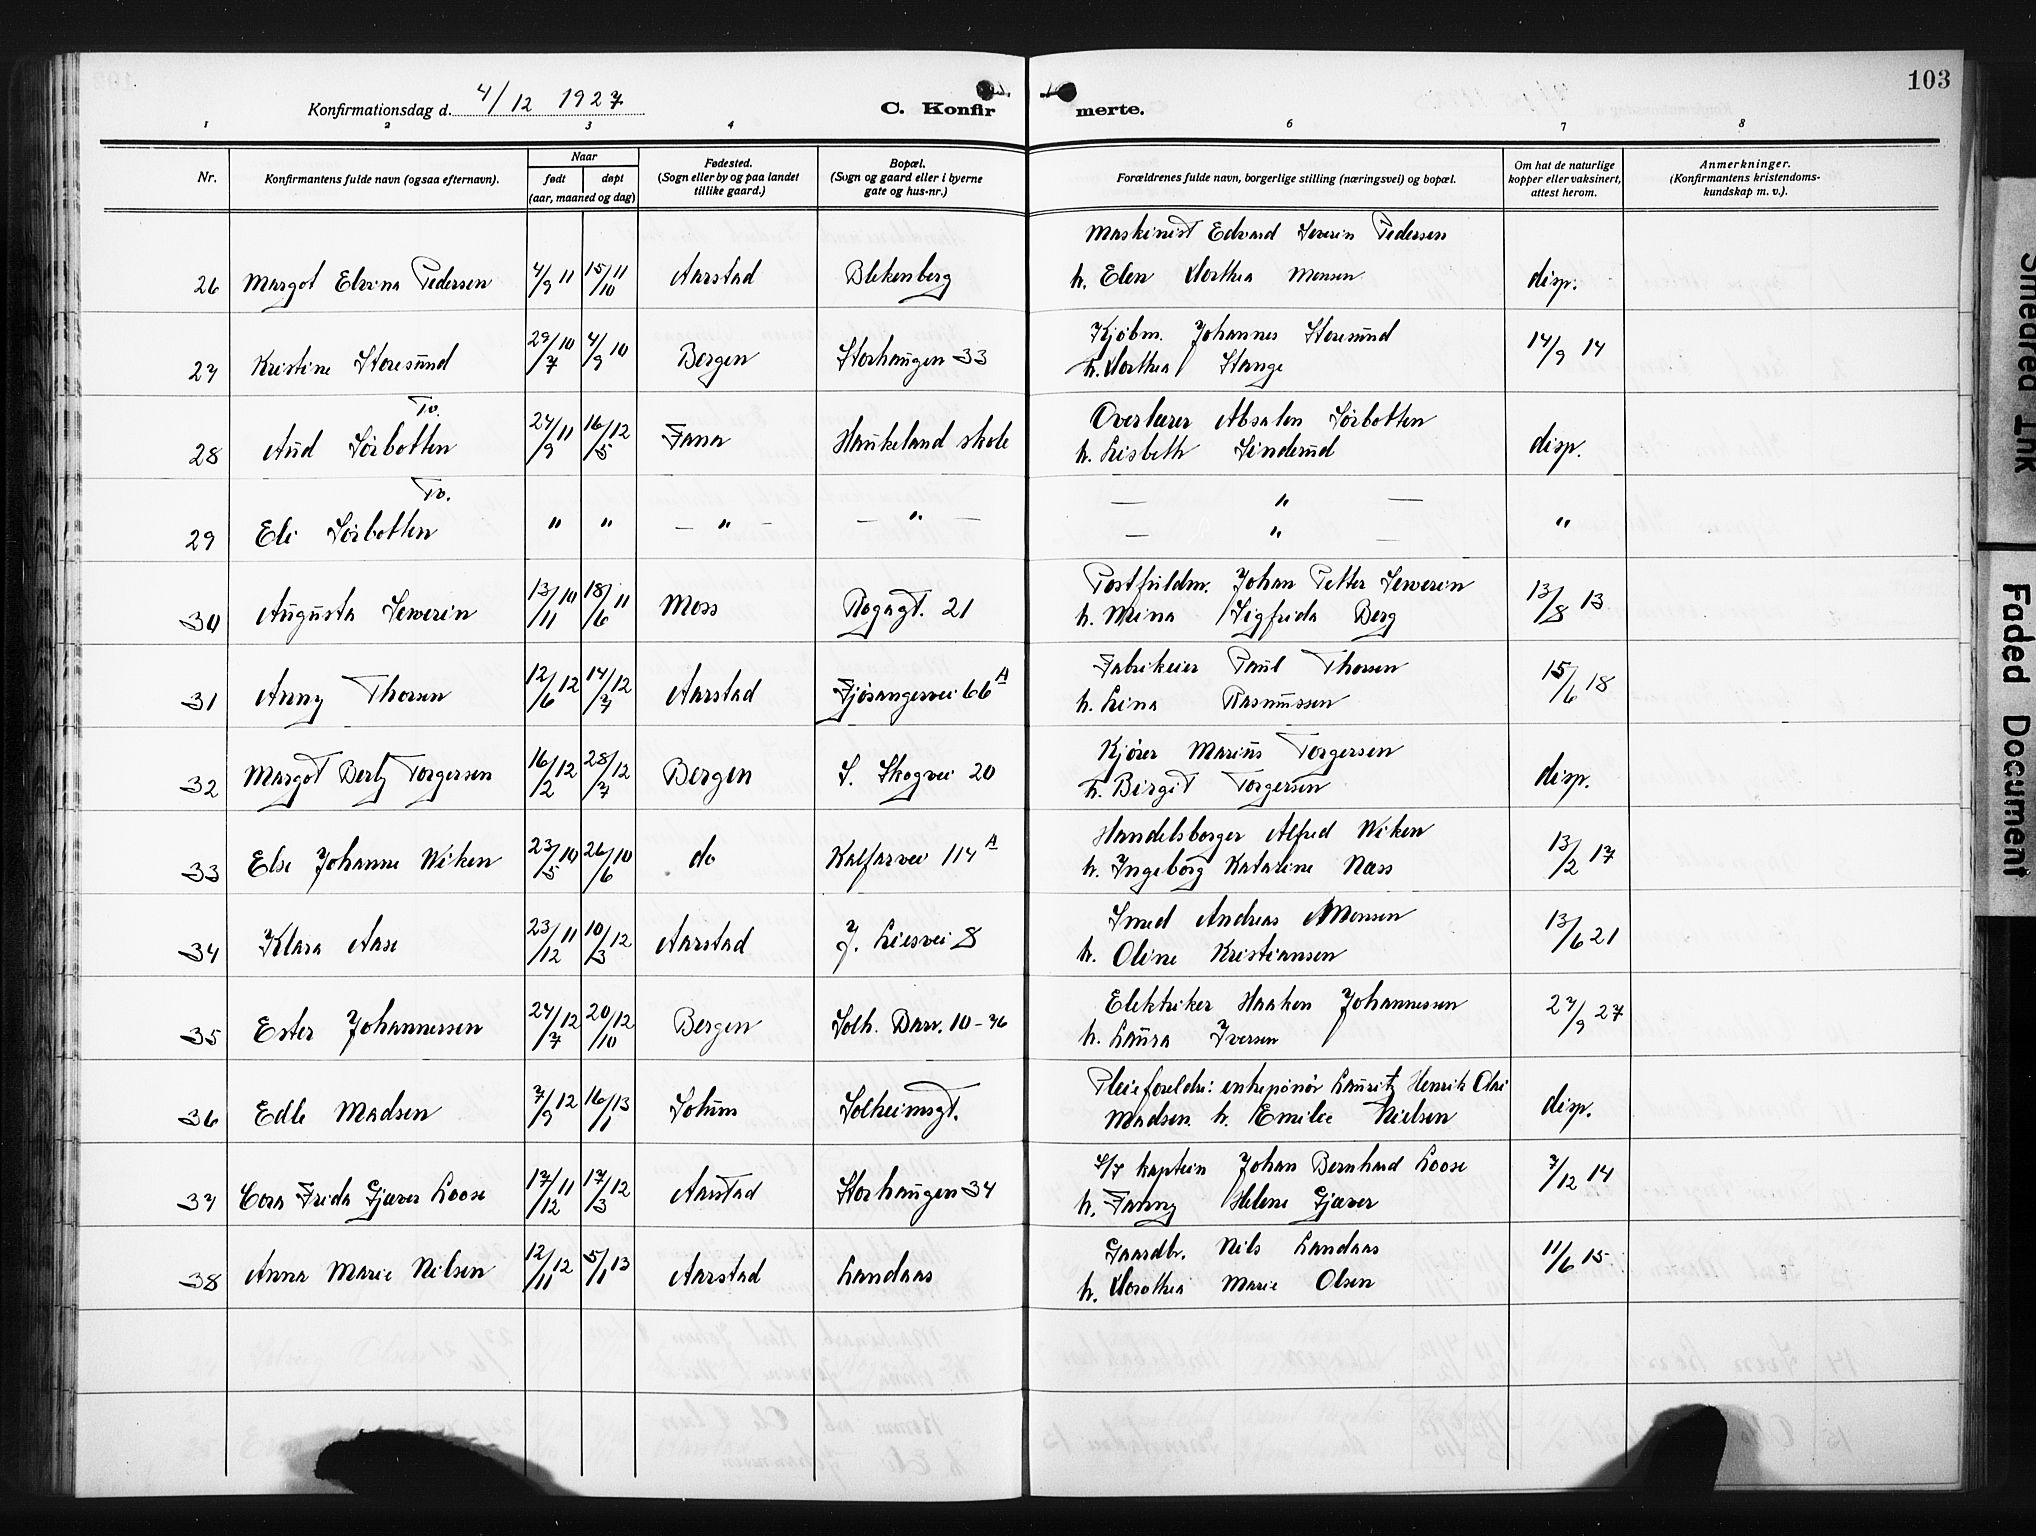 103
Konfirmationsdag d. 4/12 1927
C. Konfirmerte.
1 2 3 4 6 7 8
Nr.
Konfirmantens fulde navn (ogsaa efternavn).
Naar
født døpt
(aar, maaned og dag)
Fødested.
(Sogn eller by og paa landet
tillike gaard.)
Bopæl.
(Sogn og gaard eller i byerne
gate og hus-nr.)
Forældrenes fulde navn, borgerlige stilling (næringsvei) og bopæl.
Om hat de naturlige
kopper eller vaksinert,
attest herom.
Anmerkninger.
(Konfirmantens kristendoms-
kundskap m. v.).
Maskinist Edvard Severin Pedersen
26 Margot Elvina Pedersen 4/9 11 15/10 11 Aarstad Blekenberg h. Elen Dorthea Monsen disp.
Kjøbm. Johannes Storesund
27 Kristine Storesund 29/7 10 4/9 10 Bergen Storhaugen 33 h. Dorthea Stange 14/9 14
Tv. Overlærer Absalon Sørbotten
28 Aud Sørbotten 27/9 11 16/5 12 Fana Haukeland skole h. Lisbeth Sinderud disp.
Tv. — " —
29 Eli Sørbotten " " — " — — " — — " — "
Postfuldm. Johan Petter Sewerin
30 Augusta Sewerin 13/11 10 18/6 11 Moss Rogagt. 21 h. Mina Sigfrida Berg 13/8 13
Fabrikeier Paul Thorsen
31 Anny Thorsen 12/6 12 14/7 12 Aarstad Fjøsangervei 66 A h. Lina Rasmussen 15/6 18
Kjører Marius Torgersen
32 Margot Berly Torgersen 16/2 12 28/7 12 Bergen S. Skogvei 20 h. Birgit Torgersen disp.
Handelsborger Alfred Wiken
33 Else Johanne Wiken 23/5 10 26/6 10 do Kalfarvei 114 A h. Ingeborg Katarine Næss 13/2 17
Smed Andreas Monsen
34 Klara Aase 23/12 11 10/3 12 Aarstad J. Liesvei 8 h. Oline Kristiansen 13/6 21
Elektriker Haakon Johannessen
35 Ester Johannessen 27/7 12 20/10 12 Bergen Solh. Barr. 10-36 h. Laura Iversen 27/9 27
Pleieforeldre: entreprenør Lauritz Henrik Olai
36 Edle Madsen 7/9 12 16/1 13 Solum Solheimsgt. Madsen h. Emilie Nielsen disp.
S/S kaptein Johan Bernhard Loose
37 Cora Frida Gjæver Loose 17/12 11 17/3 12 Aarstad Storhaugen 34 h. Fanny Helene Gjæver 7/12 14
Gaardbr. Nils Landaas
38 Anna Marie Nilsen 12/11 12 5/1 13 Aarstad Landaas h. Dorothea Marie Olsen 11/6 15
Smeared Ink
Faded Document